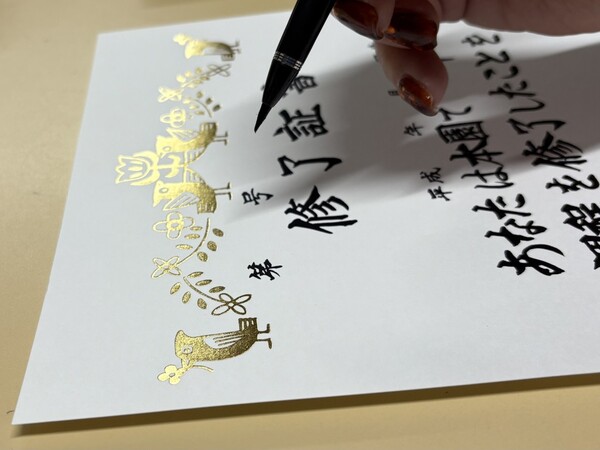 第 号
修了証書
平成 年 月
あなたは本園で
を修了したことを